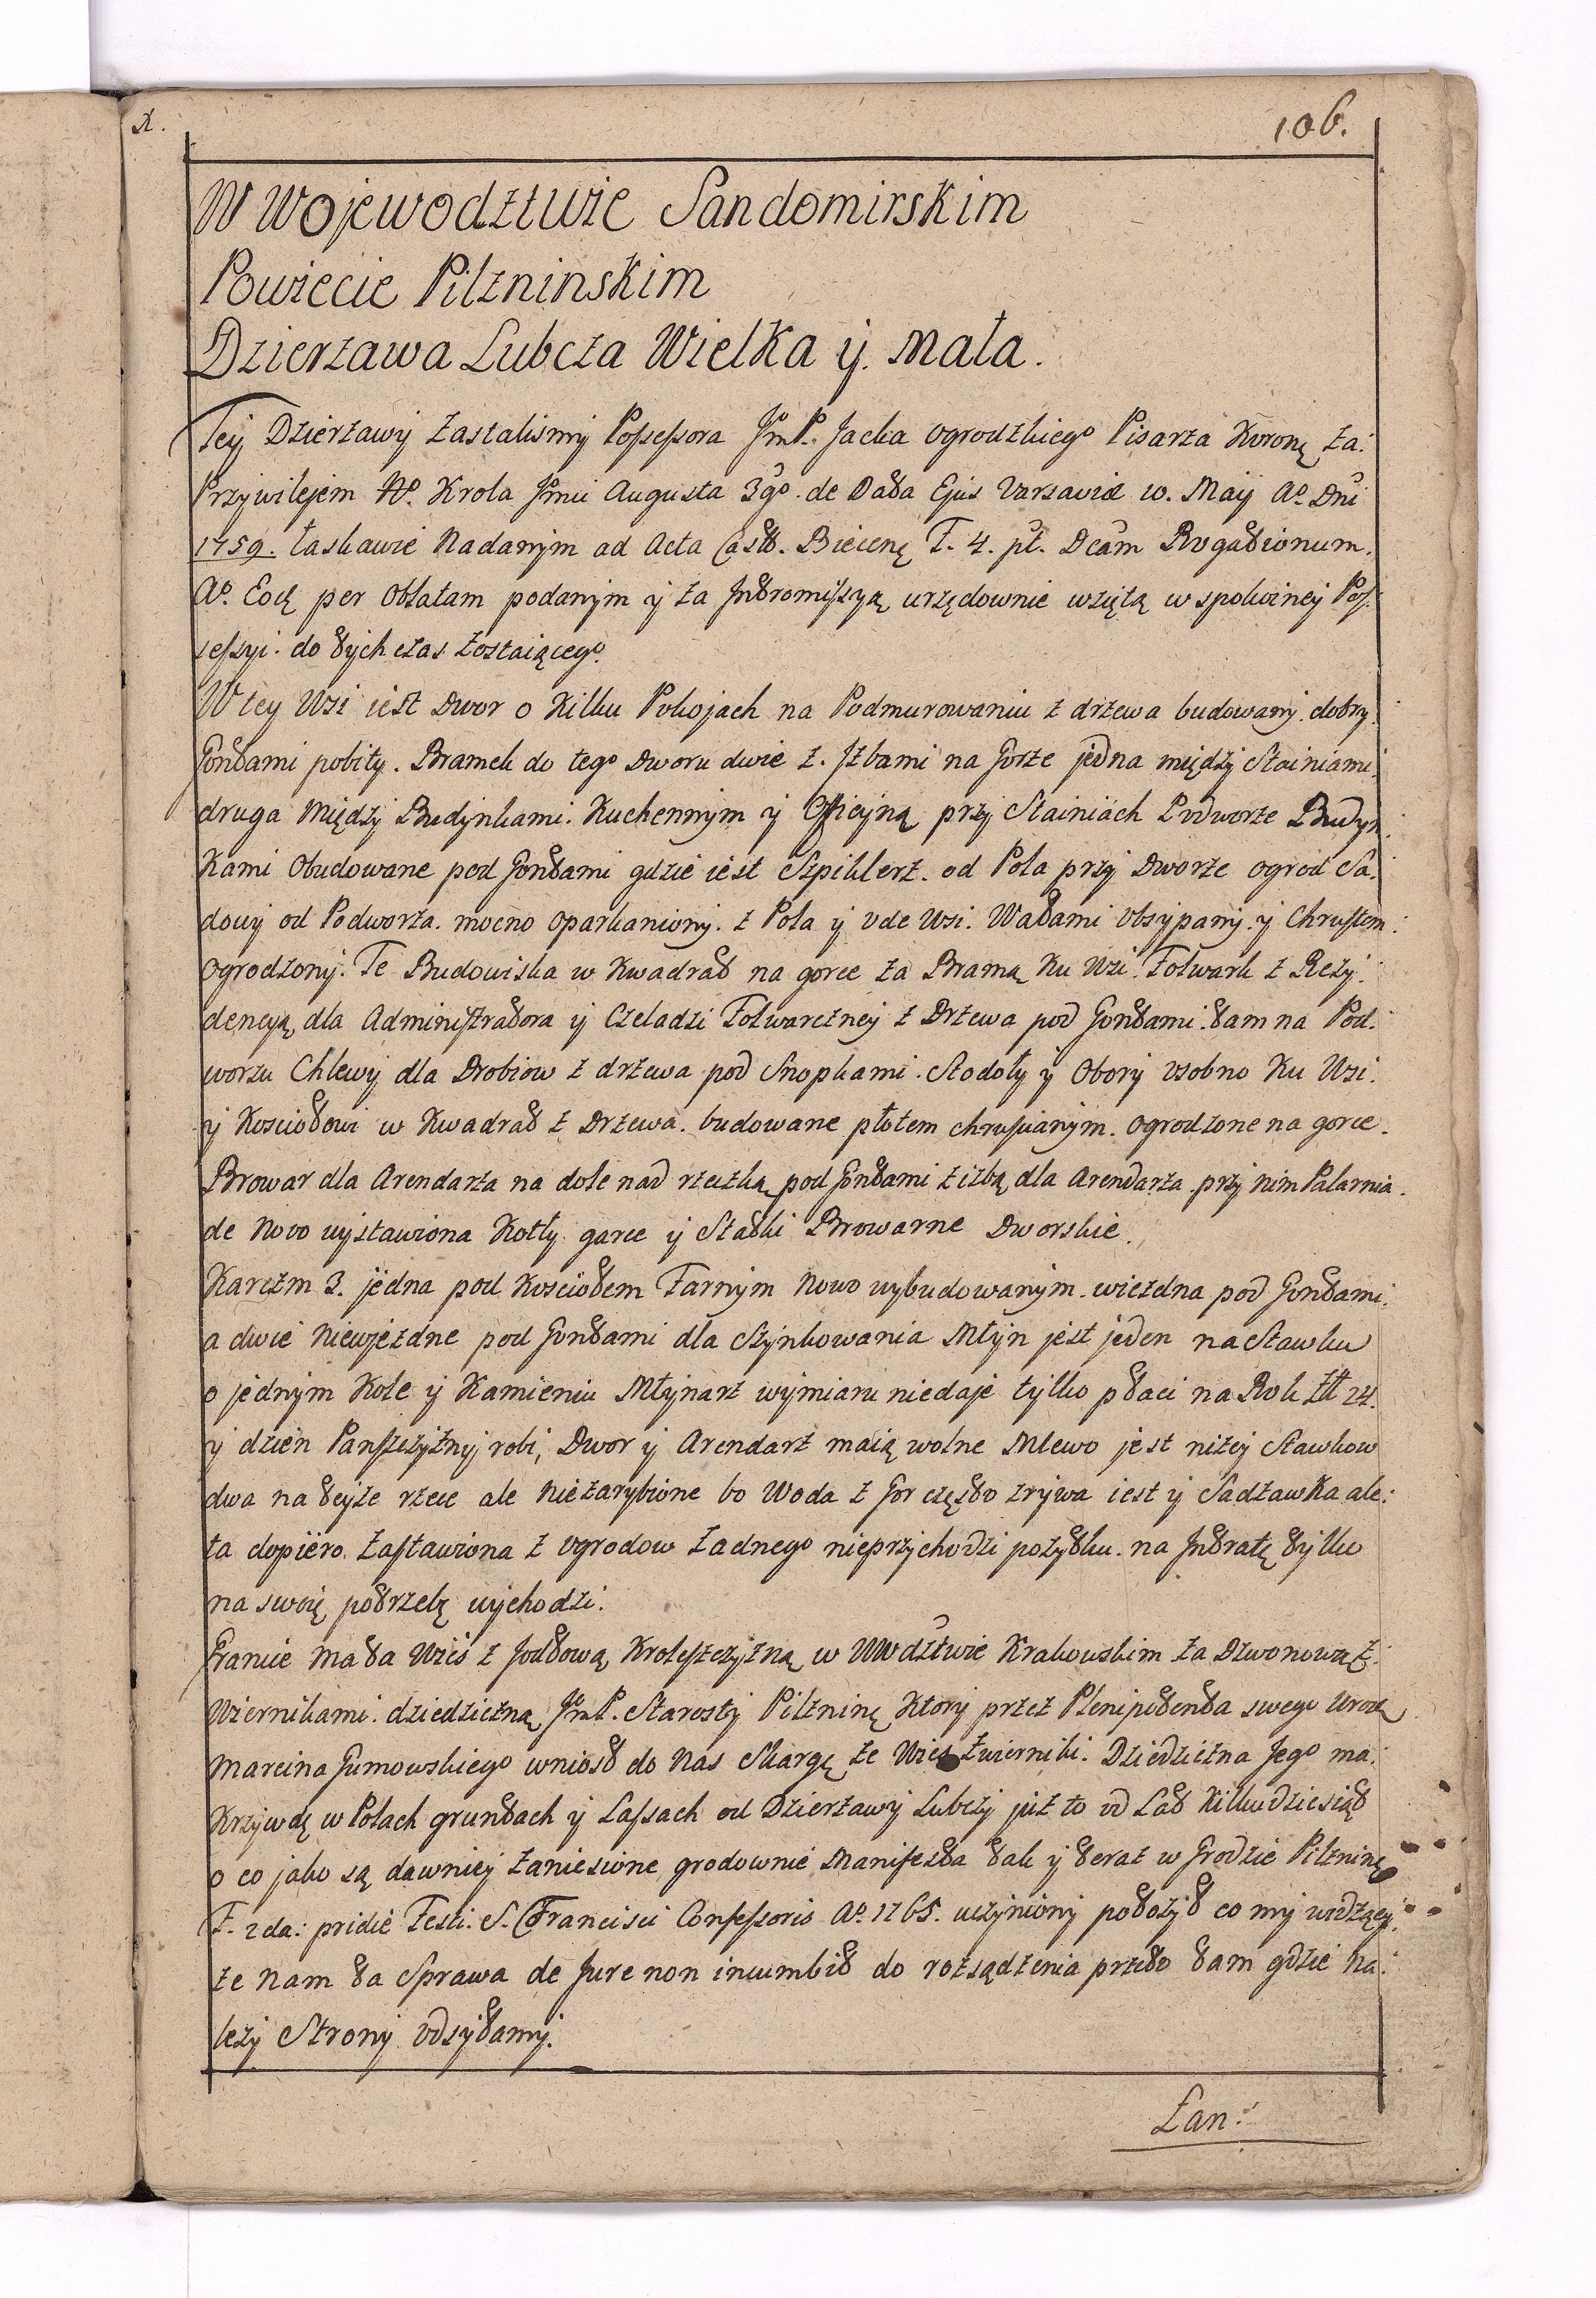 106.
W Wojewodztwie Sandomirskim
Powiecie Pilzninskim
Dzierzawa Lubcza Wielka y. Mała.
Tey Dzierzawy zastalismy Possessora JmP. Jacka Ogrodzkiego Pisarza Koronę za:
Przywilejem No. Krola Jmci Augusta 3go. de Data Ejus Varsaviæ 10. Maij Ao. Dni
1759. łaskawie Nadanym ad Acta Castr. Biecenę F. 4. pt. Dcam Rogationum.
Ao. Eoą per Oblatam podanym y za Intromissyą urzędownie wziętą w spokoiney Pos:
sessyi. do tych czas zostaiącego.
W tey Wsi iest Dwor o Kilku Pokojach na Podmurowaniu z drzewa budowany. dobry.
Gontami pobity. Bramek do tego Dworu dwie z. Jzbami na Gorze jedna między Stainiami.
druga Między Budynkami. Kuchennym y Officyną przy Stainiach Podworze Budyn:
Kami Obudowane pod Gontami gdzie iest Szpiklerz. od Pola przy Dworze ogrod Sa.
dowy od Podworza. mocno oparkaniony. z Pola y ode Wsi. Wałami obsypany. y Chrustem.
Ogrodzony. Te Budowiska w Kwadrat na gorce za Bramą Ku Wsi. Folwark z Rezy.
dencyą dla Administratora y Czeladzi Folwarczney z Drzewa pod Gontami. tam na Pod.
worzu Chlewy dla Drobiow z drzewa pod Snopkami. Stodoły y Obory osobno Ku Wsi.
y Kosciołowi w Kwadrat z Drzewa. budowane płotem chruscianym. Ogrodzone na gorce.
Browar dla Arendarza na dole nad rzeczką pod Gontami z izbą dla Arendarza. przy nim Palarnia.
de Novo wystawiona Kotły garce y Statki Browarne Dworskie.
Karczm 3. jedna pod Kosciołem Farnym Nowo wybudowanym. wiezdna pod Gontami.
a dwie Niewjezdne pod Gontami dla Szynkowania Młyn jest jeden na Stawku
o jednym Kole y Kamieniu Młynarz wymiaru niedaje tylko płaci na Rok Złł 24.
y dzien Panszczyzny robi, Dwor y Arendarz maią wolne Mlewo jest niżej Stawkow
dwa na teyze rzece ale Niezarybione bo Woda z Gor często zrywa iest y Sadzawka ale:
ta dopiero. zastawiona z ogrodow żadnego nieprzychodzi pożytku. na Jntratę tylko
na swoię potrzebę wychodzi.
Granice Mała Wies z Jodłową Krolefszczyzną w WWdztwie Krakowskim za Dzwonową z:
Wiernikami. dziedziczną JmP. Starosty Pilzninę Ktory przez Plenipotenta swego Urod
Marcina Gumowskiego wniosł do Nas Skargę ze Wies Zwierniki. Dziedziczna Jego ma:
Krzywdę w Polach gruntach y Lassach od Dzierzawy Lubczy już to od Lat Kilkudziesiąt
o co jako są dawniey zaniesione grodownie Manifesta tak y teraz w Grodzie Pilzninę
F. 2da: pridie Festi. S. Francisci Confessoris Ao. 1765. uczyniony położył co my widzący,
ze nam ta Sprawa de Jure non incumbit do rozsądzenia przeto tam gdzie na:
lezy Strony odsyłamy.
Łan: